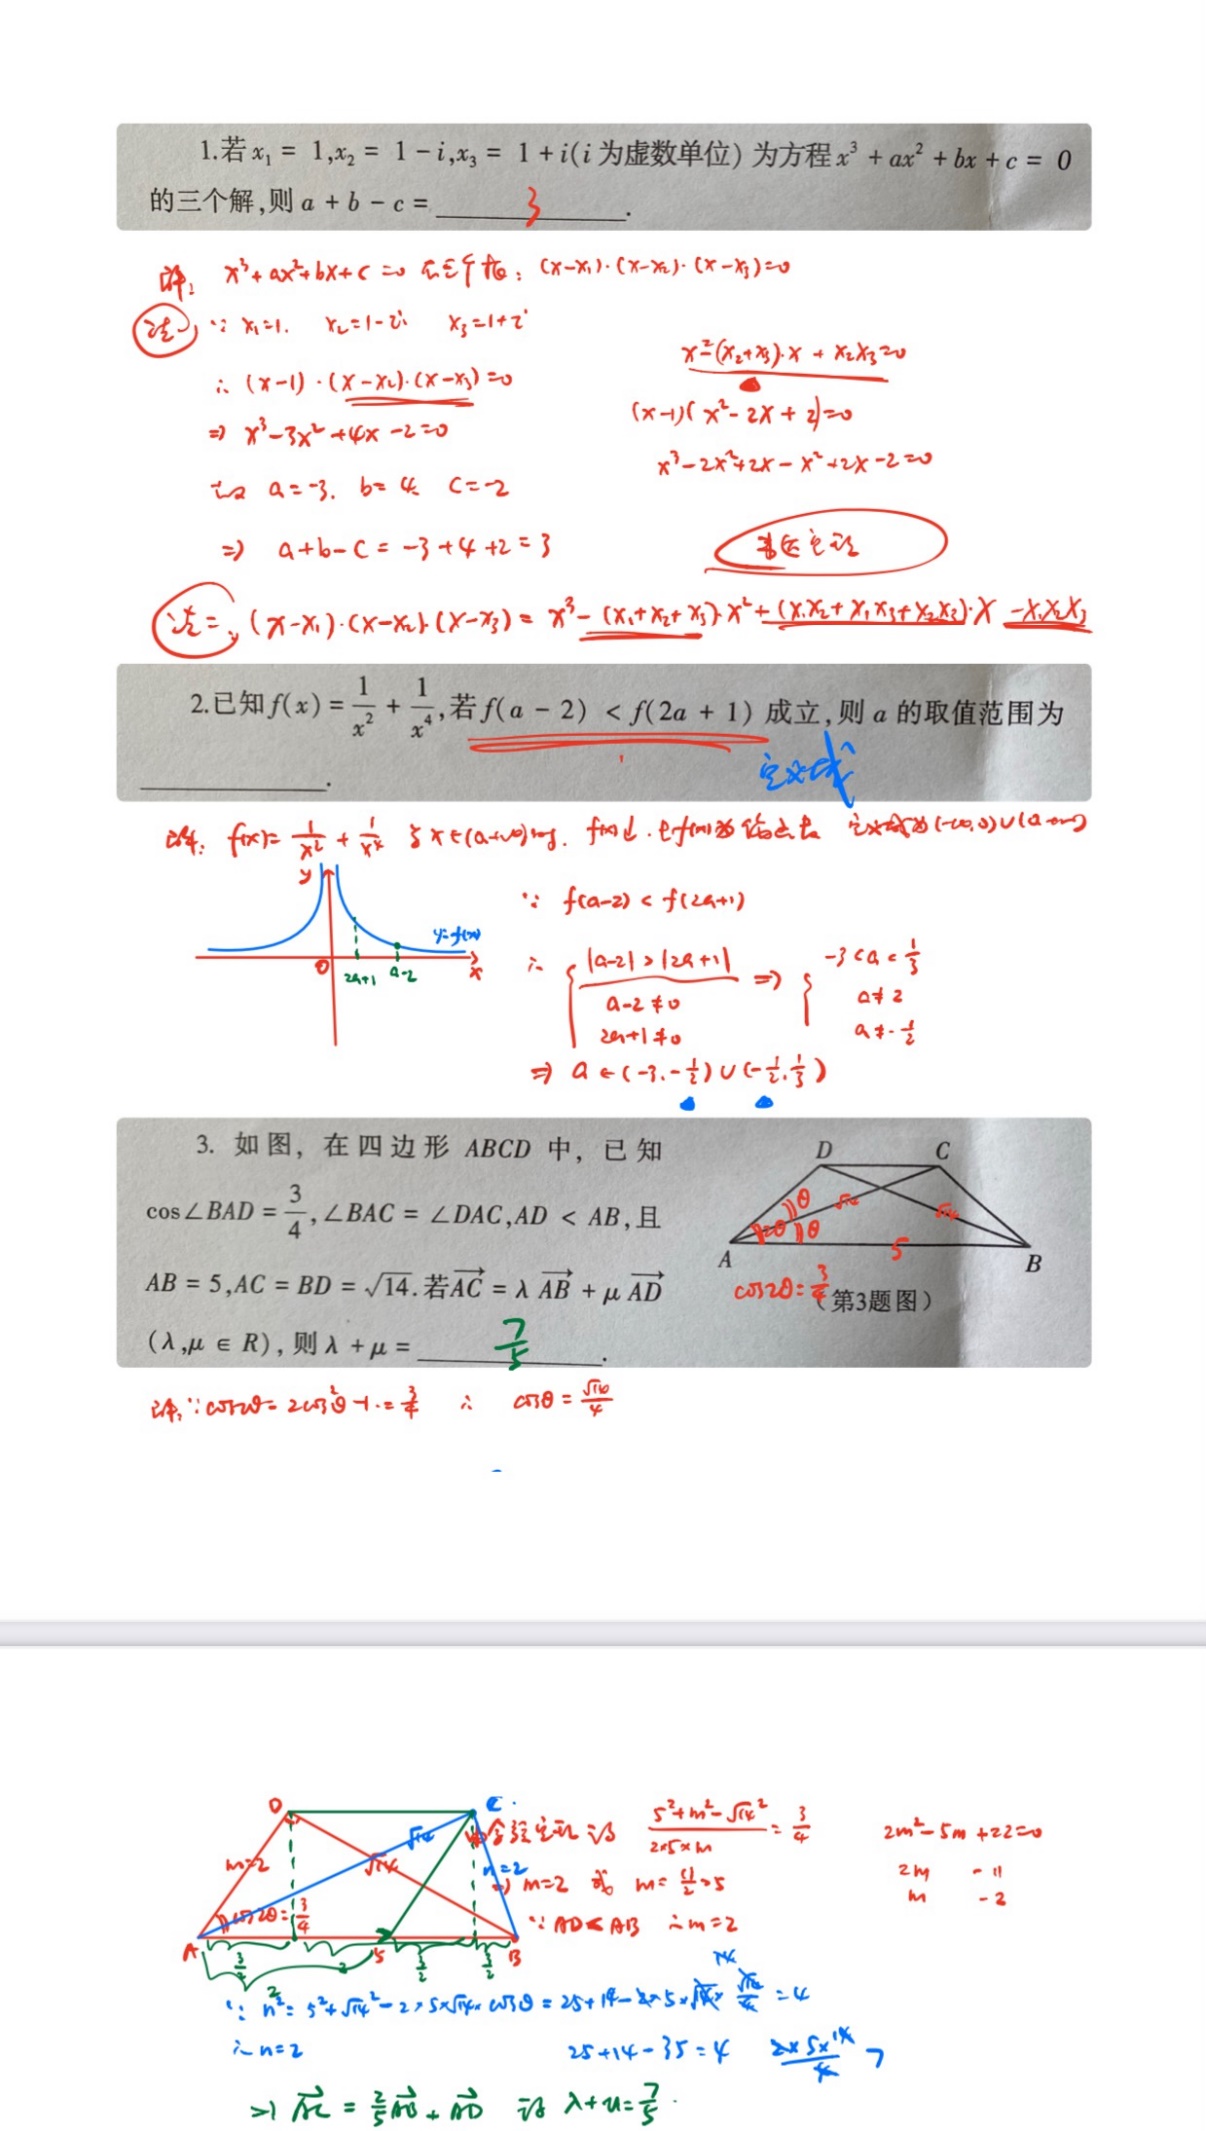 1.若x₁ = 1,x₂ = 1 - i,x₃ = 1 + i(i 为虚数单位) 为方程x³ + ax² + bx + c = 0
的三个解,则 a + b - c = 3.
解: x³+ax²+bx+c=0 有三个根: (x-x₁)·(x-x₂)·(x-x₃)=0
法一, ∵ x₁=1. x₂=1-i x₃=1+i
∴ (x-1)·(x-x₂)·(x-x₃)=0
x²-(x₂+x₃)·x + x₂x₃=0
(x-1)(x²-2x+2)=0
⇒ x³-3x²+4x-2=0
x³-2x²+2x-x²+2x-2=0
a=-3. b=4 c=-2
⇒ a+b-c=-3+4+2=3
韦达定理
法二, (x-x₁)·(x-x₂)·(x-x₃)=x³-(x₁+x₂+x₃)·x²+(x₁x₂+x₁x₃+x₂x₃)·x-x₁x₂x₃
2.已知f(x) = 1/x² + 1/x⁴,若f(a - 2) < f(2a + 1) 成立,则 a 的取值范围为
.
定义域
解: f(x)=1/x²+1/x⁴ 当x∈(0,+∞)时. f(x)↓. 且f(x)为偶函数 定义域为(-∞,0)∪(0,+∞)
y
y=f(x)
O 2a+1 a-2 x
∵ f(a-2)<f(2a+1)
∴ { |a-2|>|2a+1| ⇒ { -3<a<1/3
a-2≠0 a≠2
2a+1≠0 a≠-1/2
⇒ a∈(-3,-1/2)∪(-1/2,1/3)
3. 如图, 在四边形 ABCD 中, 已知
cos∠BAD = 3/4,∠BAC = ∠DAC,AD < AB,且
AB = 5,AC = BD = √14.若AC→ = λ AB→ + μ AD→
(λ,μ ∈ R), 则 λ + μ = 7/5.
D C
θ √14 √14
2θ θ
A 5 B
cos2θ=3/4
(第3题图)
解: ∵cos2θ=2cos²θ-1=3/4 ∴ cosθ=√14/4
D C
m=2 √14 √14 n=2
cos2θ=3/4
A 5 B
3/2 2 3/2
余弦定理 得 (5²+m²-√14²)/(2×5×m)=3/4
2m²-15m+22=0
2m -11
m -2
⇒ m=2 或 m=11/2>5
∵ AD<AB ∴m=2
∵ n²=5²+√14²-2×5×√14×cosθ=25+14-2×5×√14×√14/4=4
∴ n=2
25+14-35=4
2×5×14/4
⇒ AC→=2/5AB→+AD→ 得 λ+μ=7/5.